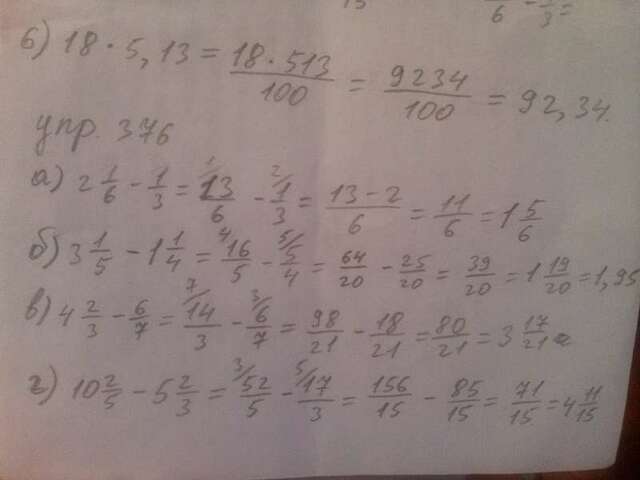 15 6 - 1/3 =
6) 18 · 5,13 = 18 · 513/100 = 9234/100 = 92,34.
упр. 376
а) 2 1/6 - 1/3 = 1/ 13/6 - 2/ 1/3 = 13 - 2/6 = 11/6 = 1 5/6
б) 3 1/5 - 1 1/4 = 4/ 16/5 - 5/ 5/4 = 64/20 - 25/20 = 39/20 = 1 19/20 = 1,95
в) 4 2/3 - 6/7 = 7/ 14/3 - 3/ 6/7 = 98/21 - 18/21 = 80/21 = 3 17/21
г) 10 2/5 - 5 2/3 = 3/ 52/5 - 5/ 17/3 = 156/15 - 85/15 = 71/15 = 4 11/15